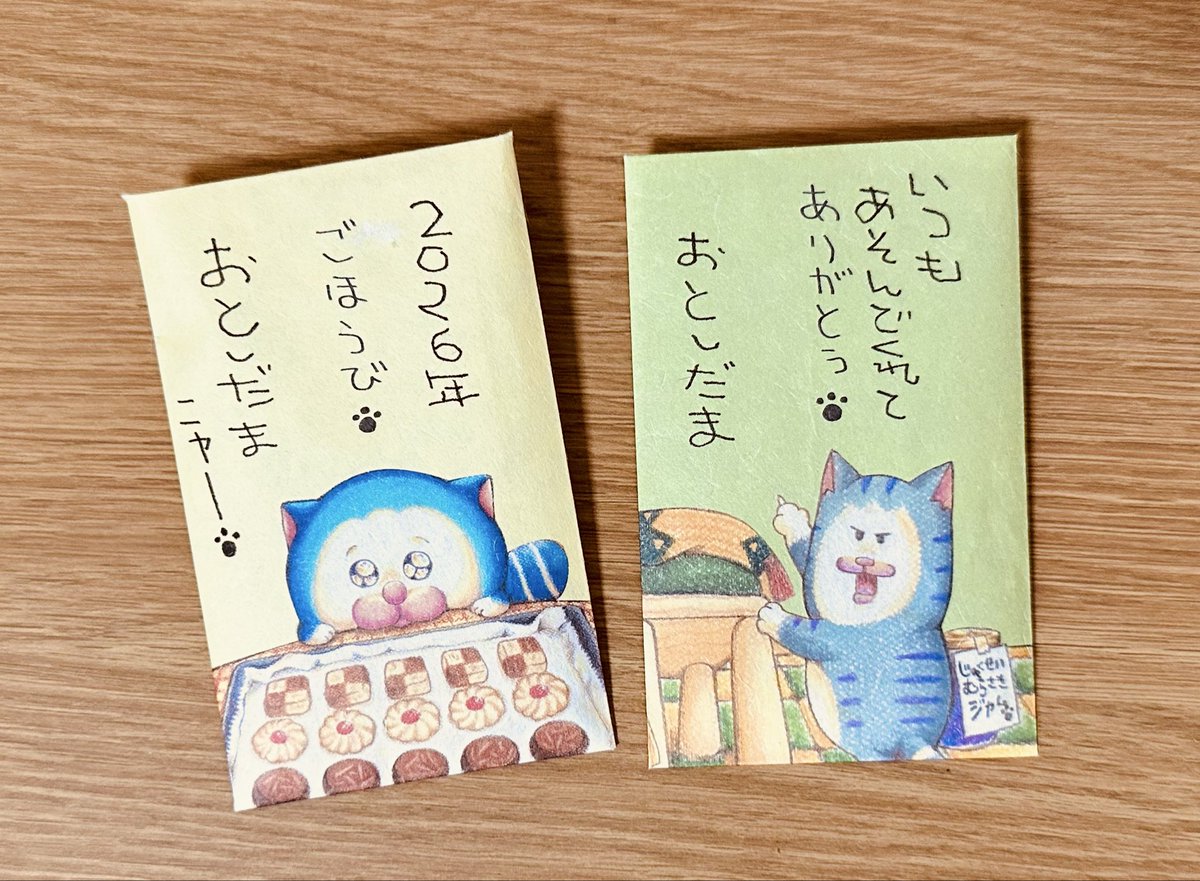 2026年
ごほうび
おとしだま
ニャー
いつも
あそんでくれて
ありがとう
おとしだま
じゅくせい
むらさき
ジャム